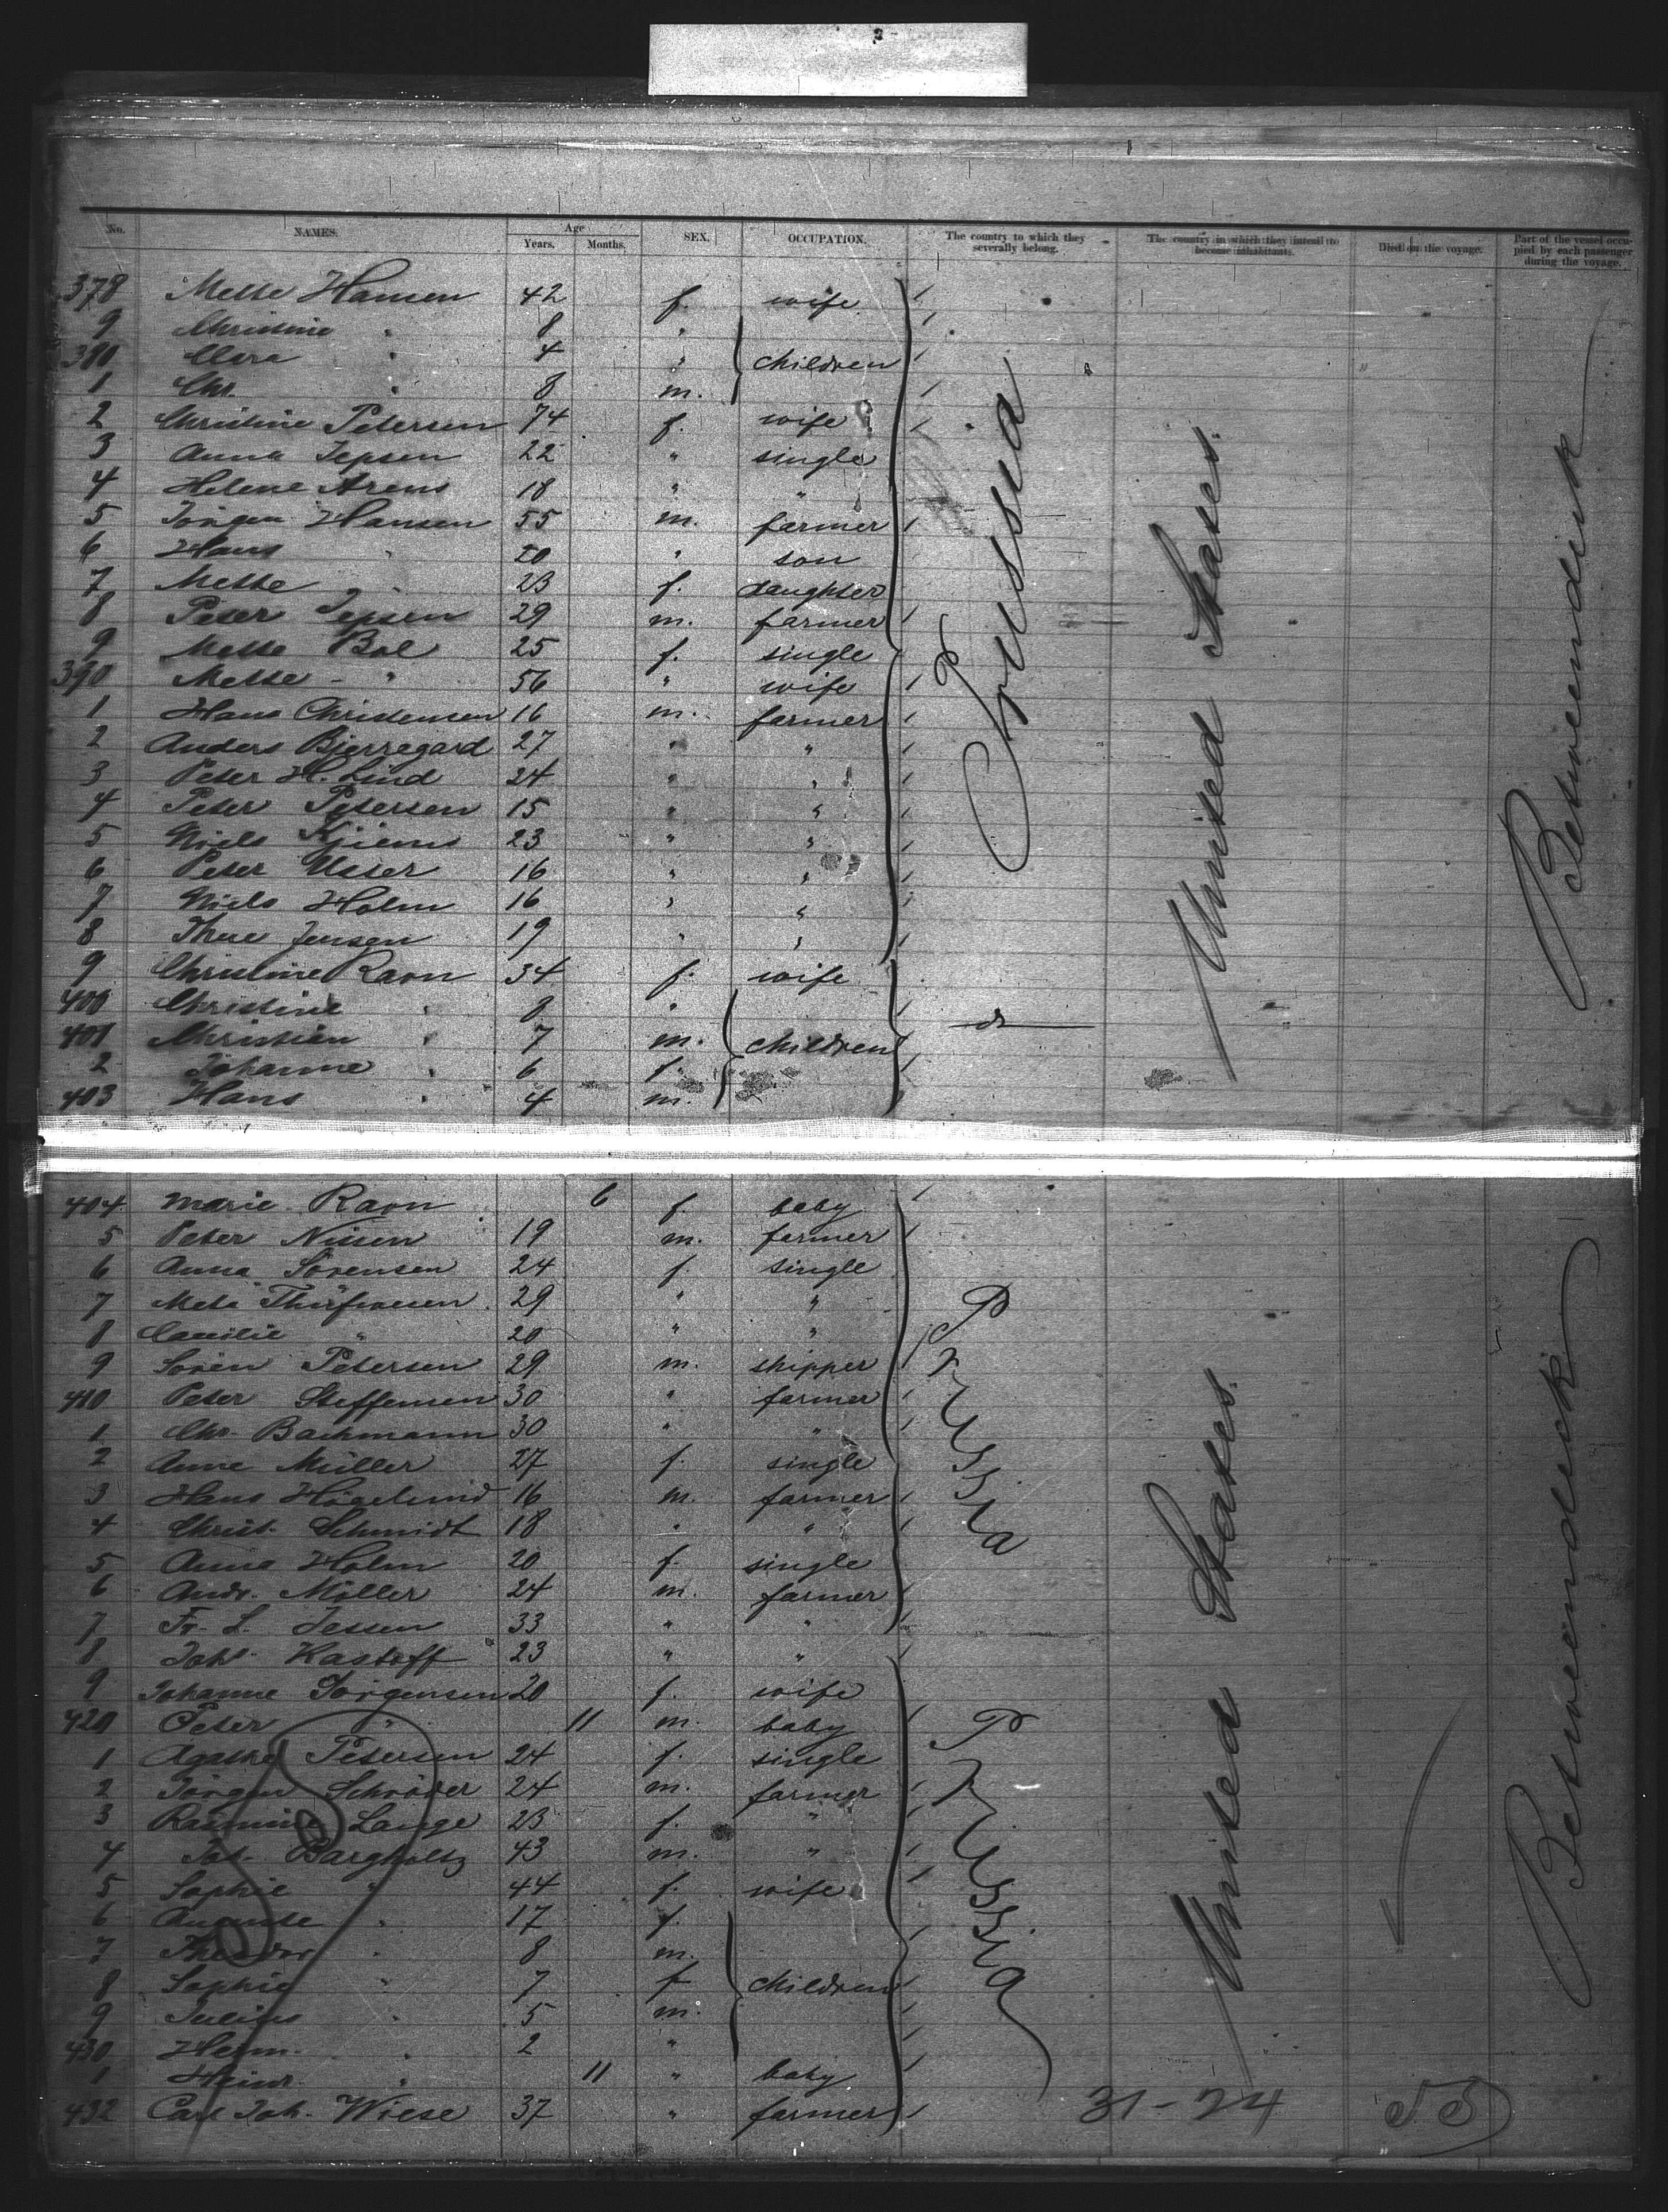 No. NAMES. Age Years. Months. SEX. OCCUPATION. The country to which they severally belong. The country in which they intend to become inhabitants. Died on the voyage. Part of the vessel occupied by each passenger during the voyage.
378 Mette Hansen 42 f. wife
9 Christine " 8 "
380 Clara " 4 " children
1 Chr. " 8 m.
2 Christine Petersen 74 f. wife
3 Anna Jepsen 22 " single
4 Helene Arens 18 " "
5 Jörgen Hansen 55 m. farmer
6 Hans " 20 " son
7 Mette " 23 f. daughter
8 Peter Jepsen 29 m. farmer
9 Mette Bol 25 f. single
390 Mette - " 56 " wife
1 Hans Christensen 16 m. farmer
2 Anders Bjerregard 27 " "
3 Peter H. Lind 24 " "
4 Peter Petersen 15 " "
5 Niels Kjiems 23 " "
6 Peter 16 " "
7 Niels Holm 16 " "
8 Thue Jensen 19 " "
9 Christine Ravn 34 f. wife
400 Christine " 8 "
401 Christian " 7 m. children
2 Johanne " 6 f.
403 Hans " 4 m.
Prussia
do
United States.
Betweendeck
404 Marie Ravn 6 f. baby
5 Peter Nissen 19 m. farmer
6 Anna Sörensen 24 f. single
7 Meta 29 " "
8 " 20 " "
9 Sören Petersen 29 m. shipper
410 Peter Steffensen 30 " farmer
1 Chr. Bachmann 30 " "
2 Anne Müller 27 f. single
3 Hans Högelund 16 m. farmer
4 Christ. Schmidt 18 " "
5 Anna Holm 20 f. single
6 Andr. Möller 24 m. farmer
7 Fr. L. Jessen 33 " "
8 Johs. Kastoff 23 " "
9 Johanne Jörgensen 20 f. wife
420 Peter " 11 m. baby
1 Agathe Petersen 24 f. single
2 Jörgen Schröder 24 m. farmer
3 Rasmine Lange 23 f. "
4 Joh. Bargholtz 43 m. "
5 Sophie " 44 f. wife
6 Auguste " 17 f.
7 Theodor " 8 m.
8 Sophie " 7 f children
9 Julius " 5 m.
430 Herm. " 2 "
1 Heinr. " 11 " baby
432 Carl Joh. Wiese 37 " farmer
Prussia
Prussia
United States.
Betweendeck
31-24